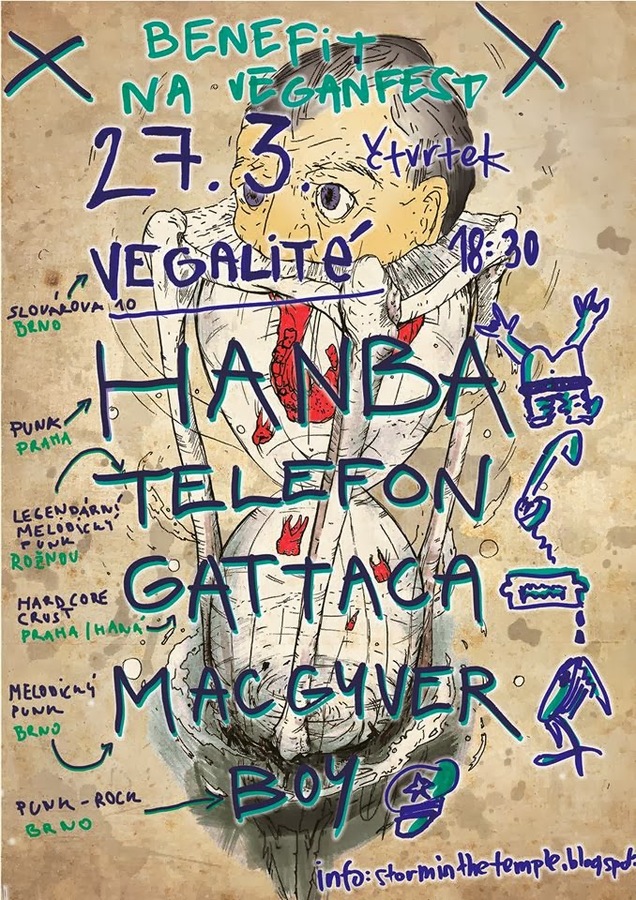 BENEFit
NA VEGANFEST
27. 3. čtvrtek
VEGALité 18:30
SLOVÁKOVA 10
BRNO
HANBA
PUNK
PRAHA
TELEFON
LEGENDÁRNÍ
MELODICKÝ
PUNK
ROŽNOV
GATTACA
HARDCORE
CRUST
PRAHA/HANÁ
MACGYVER
MELODICKÝ
PUNK
BRNO
BOY
PUNK-ROCK
BRNO
info: storminthetemple.blogspot.